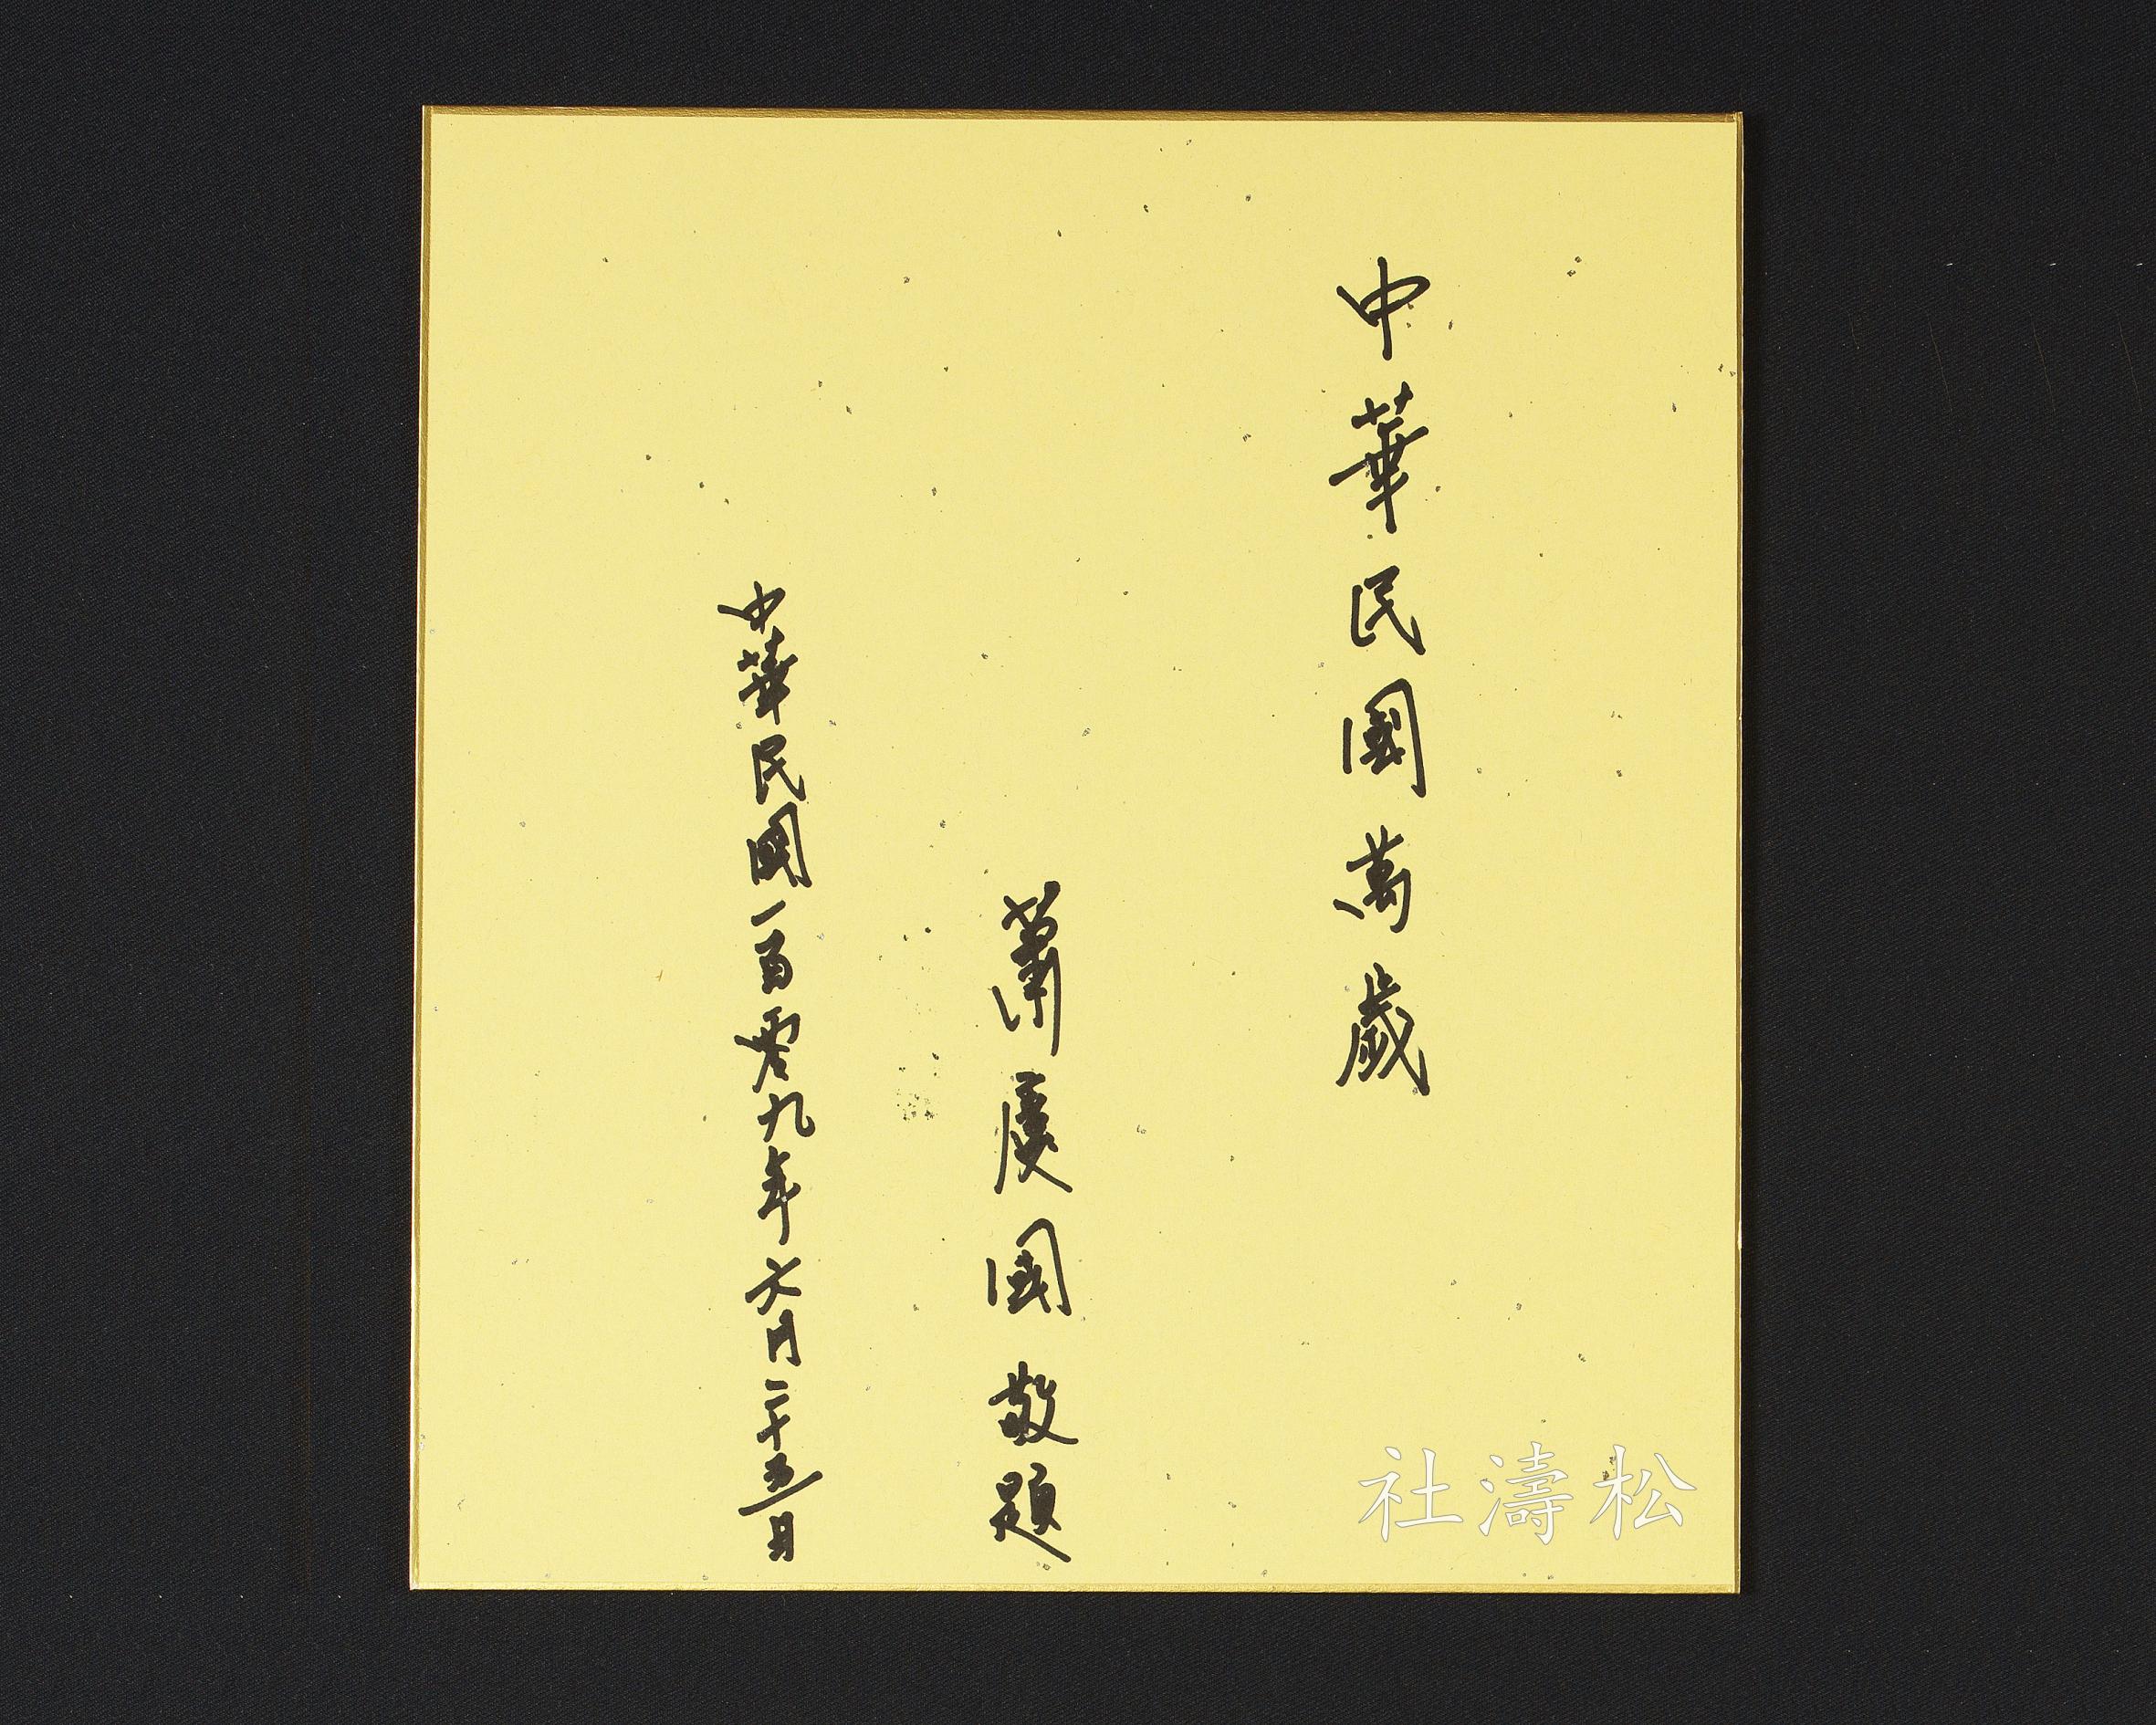 中華民國萬歲
蕭慶國敬題
中華民國一百零九年六月二十五日
松濤社